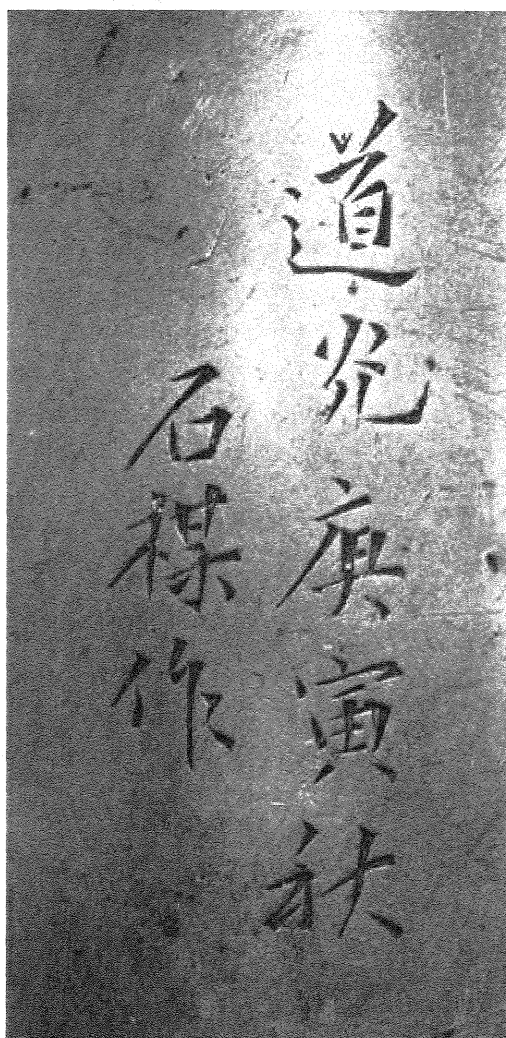 道光庚寅秋
石楳作